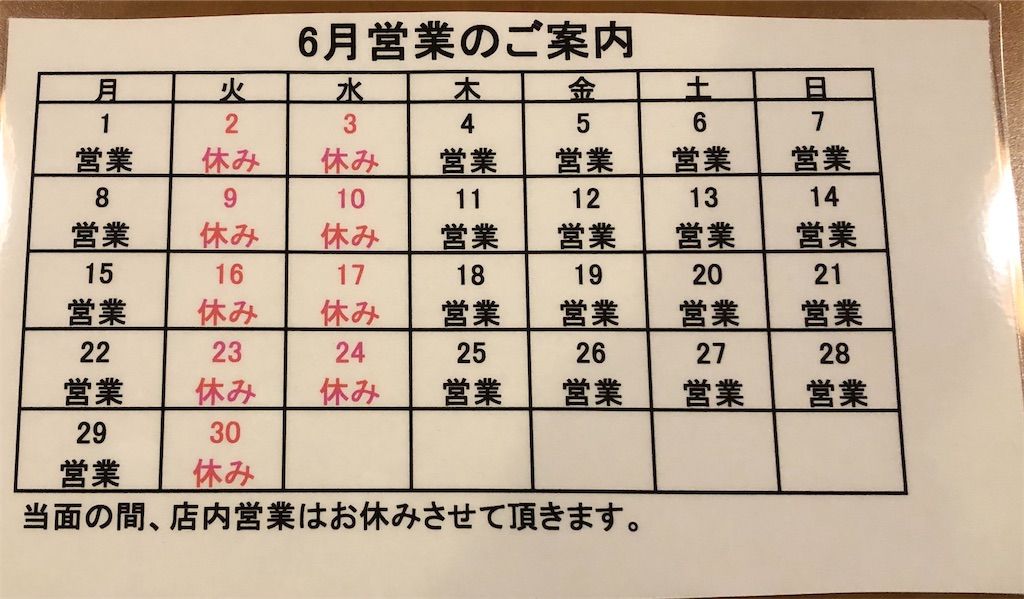 6月営業のご案内
月 火 水 木 金 土 日
1 2 3 4 5 6 7
営業 休み 休み 営業 営業 営業 営業
8 9 10 11 12 13 14
営業 休み 休み 営業 営業 営業 営業
15 16 17 18 19 20 21
営業 休み 休み 営業 営業 営業 営業
22 23 24 25 26 27 28
営業 休み 休み 営業 営業 営業 営業
29 30
営業 休み
当面の間、店内営業はお休みさせて頂きます。